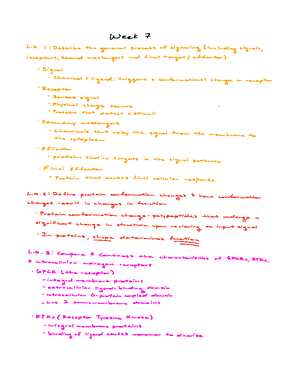 Week 7
L.O. 1: Describe the general process of signaling (including signals,
receptors, second messengers and final target / effector)
· Signal
- Chemical = ligand: triggers a conformational change in receptor
· Receptor
- Senses signal
- Physical change occurs
- Proteins that detect a stimuli
· Secondary messengers
- Chemicals that relay the signal from the membrane to
the cytoplasm
· Effector
- proteins that's targets in the signal pathway
· Final Effector
- Protein that causes final cellular response
L.O. 2: Define protein conformation changes & how conformation
changes result in changes in function
· Protein conformation change- polypeptides that undergo a
significant change in structure upon receiving an input signal
· In proteins, shape determines function
L.O. 3: Compare & Contrast the characteristics of GPCRs, RTKs,
& intracellular receptors
· GPCR (the receptor)
- integral membrane proteins
- extracellular ligand-binding domain
- intracellular G-protein coupled domain
- has 7 transmembrane domains
· RTKs (Receptor Tyrosine Kinase)
- integral membrane proteins
- binding of ligand causes monomer to dimerize